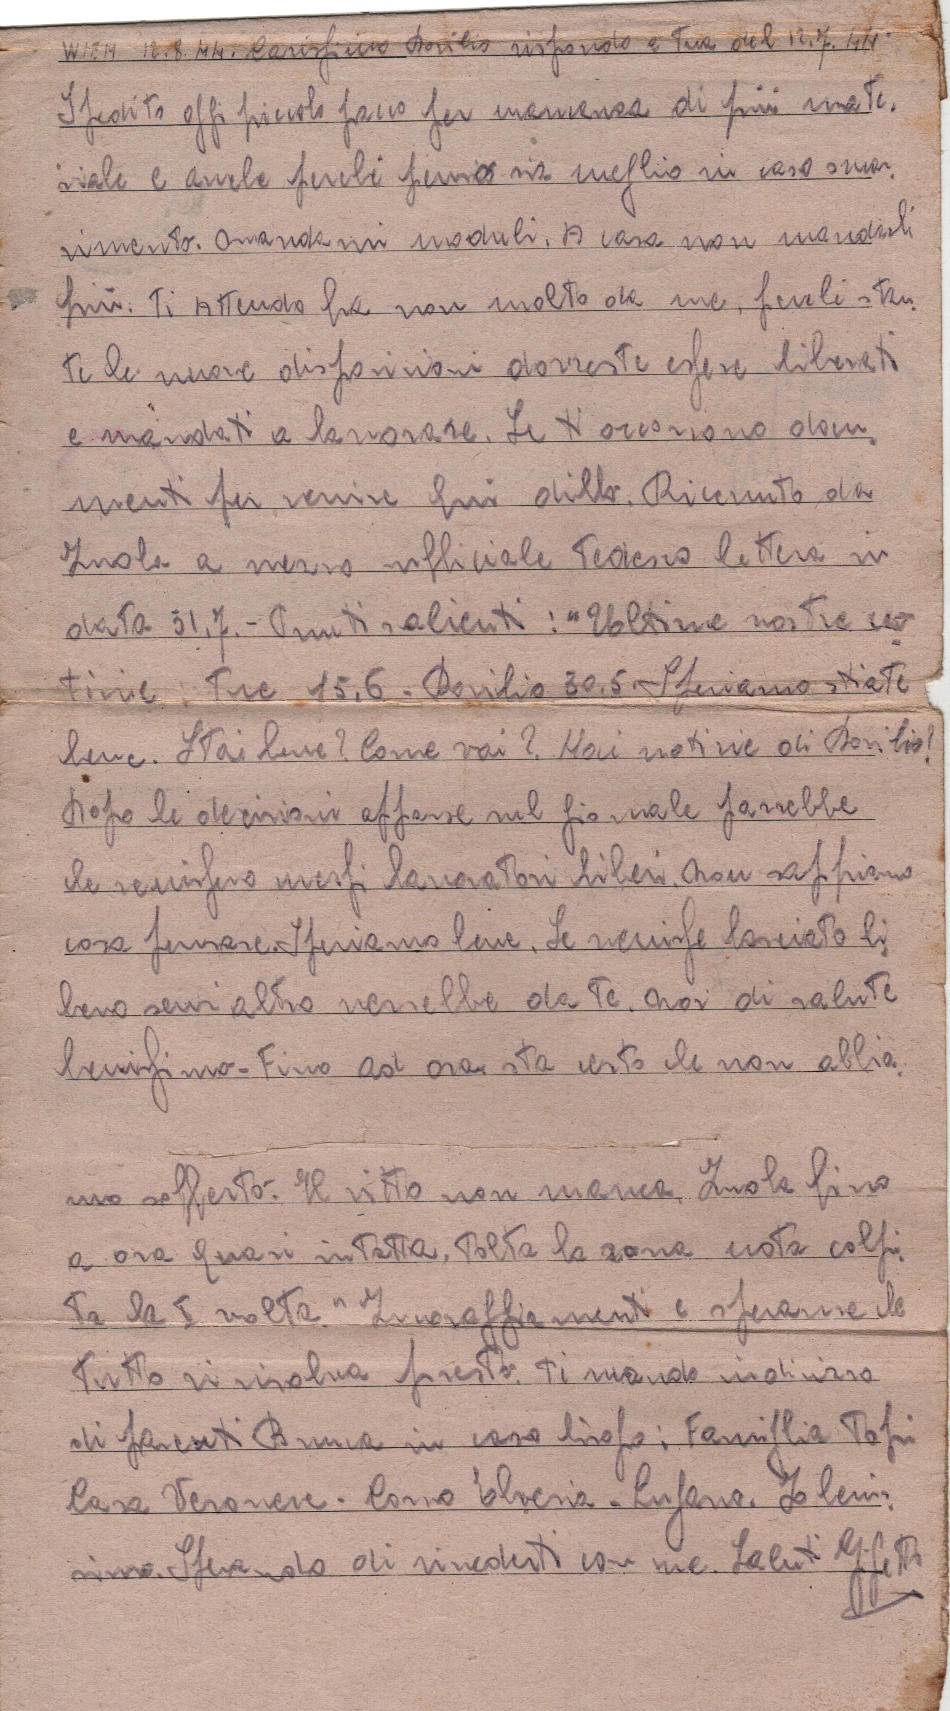 WIEN 12.8.44. Carissimo Basilio rispondo a tua del 12.7.44.
Spedito oggi piccolo pacco per mancanza di più mate-
riale e anche perché penso sia meglio in caso smar-
rimento. Mandami moduli. A casa non mandarli
più. Ti attendo fra non molto da me, perché stan-
te le nuove disposizioni dovreste essere liberati
e mandati a lavorare. Se ti occorrono docu-
menti per venire qui dillo. Ricevuto da
Imola a mezzo ufficiale tedesco lettera in
data 31.7.- Punti salienti: "Ultime vostre no-
tizie: tue 15.6 - Basilio 30.5. Speriamo stiate
bene. Stai bene? Come vai? Hai notizie di Basilio?
Dopo le decisioni apparse nel giornale parrebbe
che venissero messi lavoratori liberi. Non sappiamo
cosa pensare. Speriamo bene. Se venisse lasciato li-
bero senz'altro verrebbe da te. Noi di salute
benissimo - Fino ad ora sta certo che non abbia-
mo sofferto. Il vitto non manca. Imola fino
a ora quasi intatta, tolta la zona nota colpi-
ta la I volta." Incoraggiamenti e speranze che
tutto si risolva presto. Ti mando indirizzo
di parenti Bruna in caso bisogno: Famiglia
Casa Veronese - Corso - Lugano. Io benis-
simo. Sperando di vederti con me. Saluti